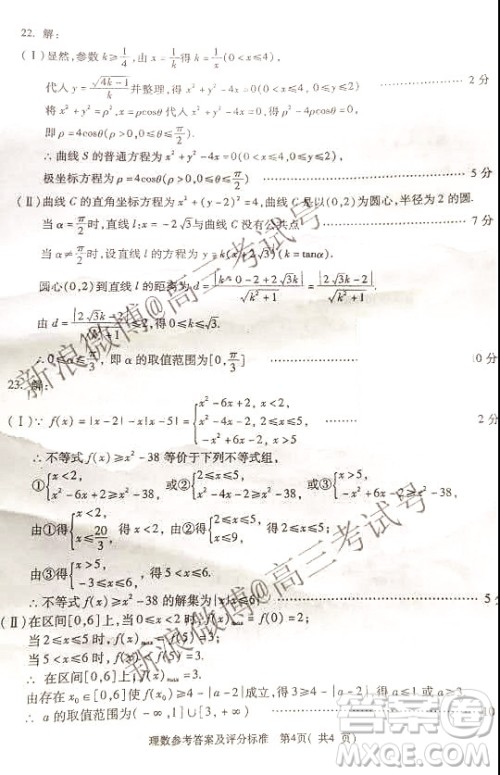 22. 解:
(Ⅰ)显然,参数 k≥1/4,由 x=1/k 得 k=1/x (0<x≤4),
代入 y=√(4k-1)/k 并整理,得 x²+y²-4x=0(0<x≤4,y≥0). 2分
将 x²+y²=ρ²,x=ρcosθ代入 x²+y²-4x=0,得 ρ²-4ρcosθ=0.
即 ρ=4cosθ(ρ>0,0≤θ≤π/2).
∴ 曲线 S 的普通方程为 x²+y²-4x=0(0<x≤4,y≥0),
极坐标方程为 ρ=4cosθ(ρ>0,0≤θ≤π/2). 5分
(Ⅱ)曲线 C 的直角坐标方程为 x²+(y-2)²=4,曲线 C 是以(0,2)为圆心,半径为 2 的圆.
当 α=π/2 时,直线 l:x=-2√3 与曲线 C 没有公共点; 7分
当 α≠π/2 时,设直线 l 的方程为 y=k(x+2√3)(k=tanα).
圆心(0,2)到直线 l 的距离为 d=|k×0-2+2√3k|/√(k²+1)=|2√3k-2|/√(k²+1).
由 d=|2√3k-2|/√(k²+1)≤2,得 0≤k≤√3.
∴ 0≤α≤π/3,即 α 的取值范围为[0,π/3].
23. 解:
(Ⅰ)∵ f(x)=|x-2|-x|x-5|={x²-6x+2,x<2, x²-4x-2,2≤x≤5, -x²+6x-2,x>5. 2分
∴ 不等式 f(x)≥x²-38 等价于下列不等式组,
①{x<2, x²-6x+2≥x²-38, 或②{2≤x≤5, x²-4x-2≥x²-38, 或③{x>5, -x²+6x-2≥x²-38.
由①得{x<2, x≤20/3, 由②得{2≤x≤5, x≤9,
由③得{x>5, -3≤x≤6, 即 5<x≤6.
∴ 不等式 f(x)≥x²-38 的解集为{x|x≤6}. 5分
(Ⅱ)在区间[0,6]上,当 0≤x<2 时,f(x)max=f(0)=2;
当 2≤x≤5 时,f(x)max=f(5)=3;
当 5<x≤6 时,f(x)<3.
∴ 在区间[0,6]上,f(x)max=3.
由存在 x₀∈[0,6]使
理数参考答案及评分标准 第4页(共4页)
新浪微博@高三考试号
新浪微博@高三考试号